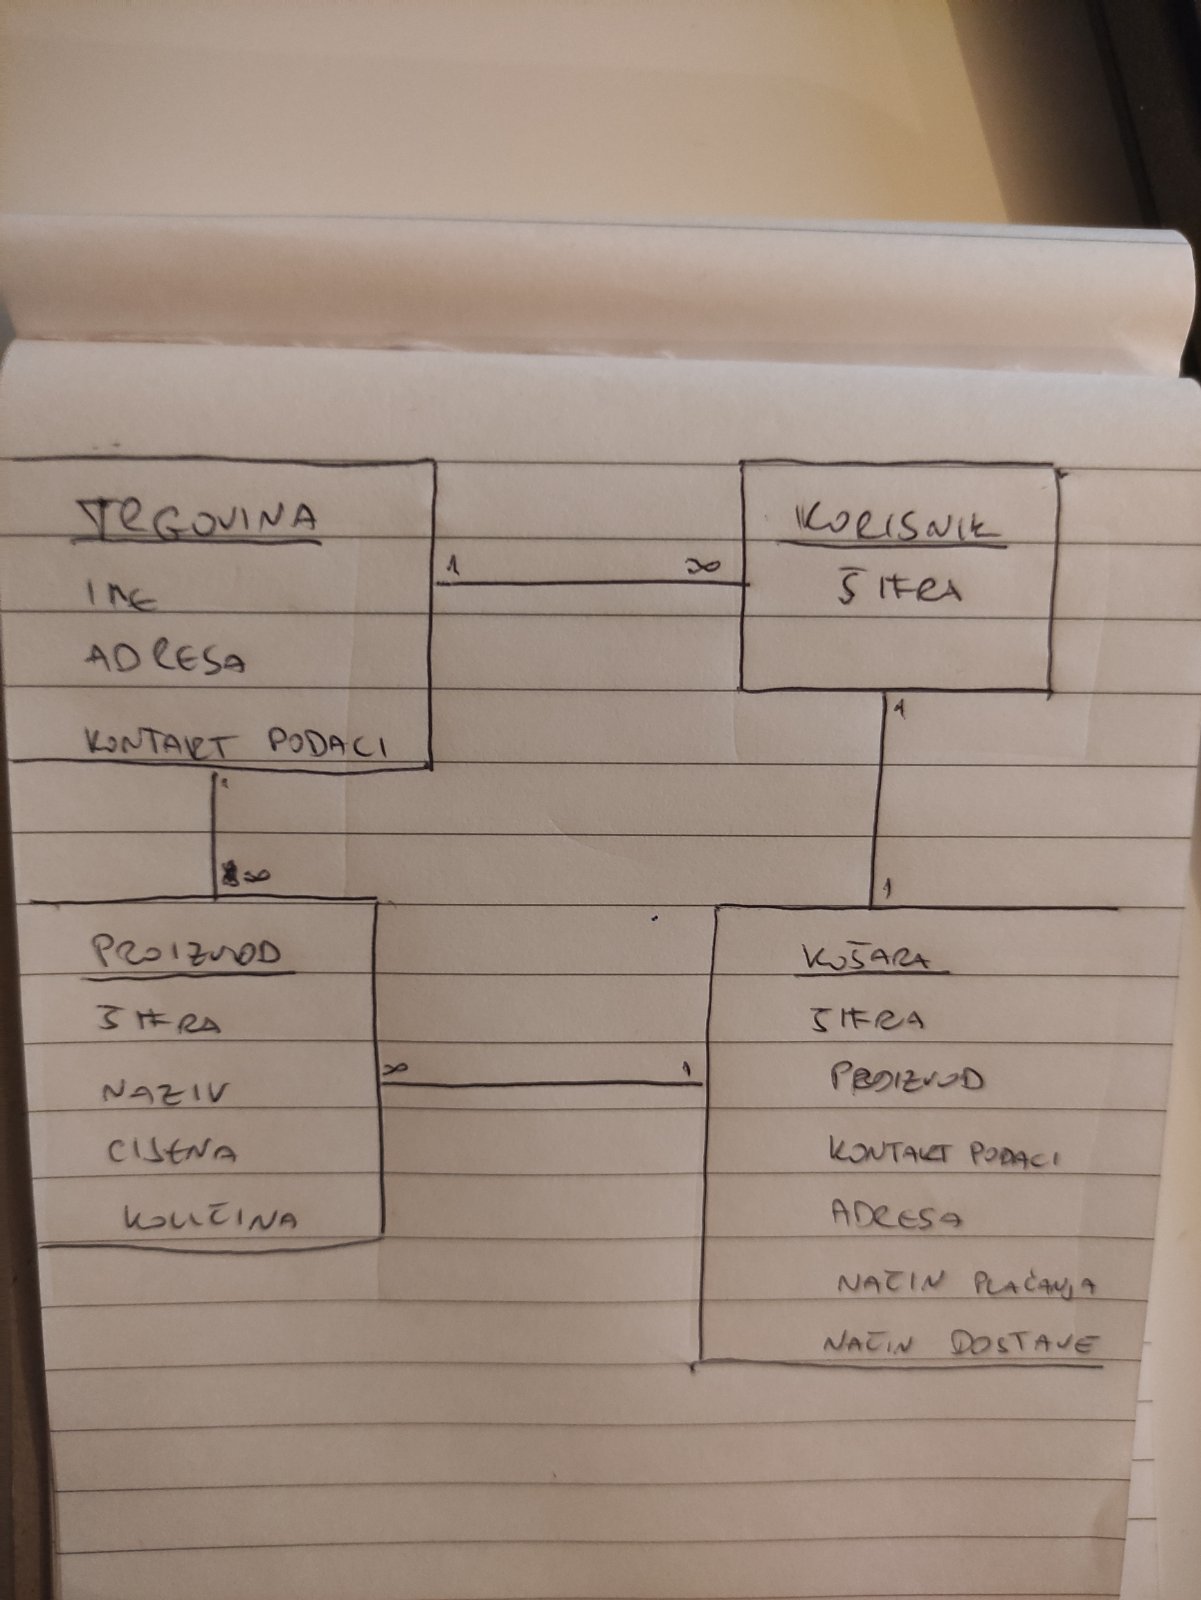 TRGOVINA
IME
ADRESA
KONTAKT PODACI
1 ∞
KORISNIK
ŠIFRA
1
1
1
∞
PROIZVOD
ŠIFRA
NAZIV
CIJENA
KOLIČINA
∞ 1
KOŠARA
ŠIFRA
PROIZVOD
KONTAKT PODACI
ADRESA
NAČIN PLAĆANJA
NAČIN DOSTAVE